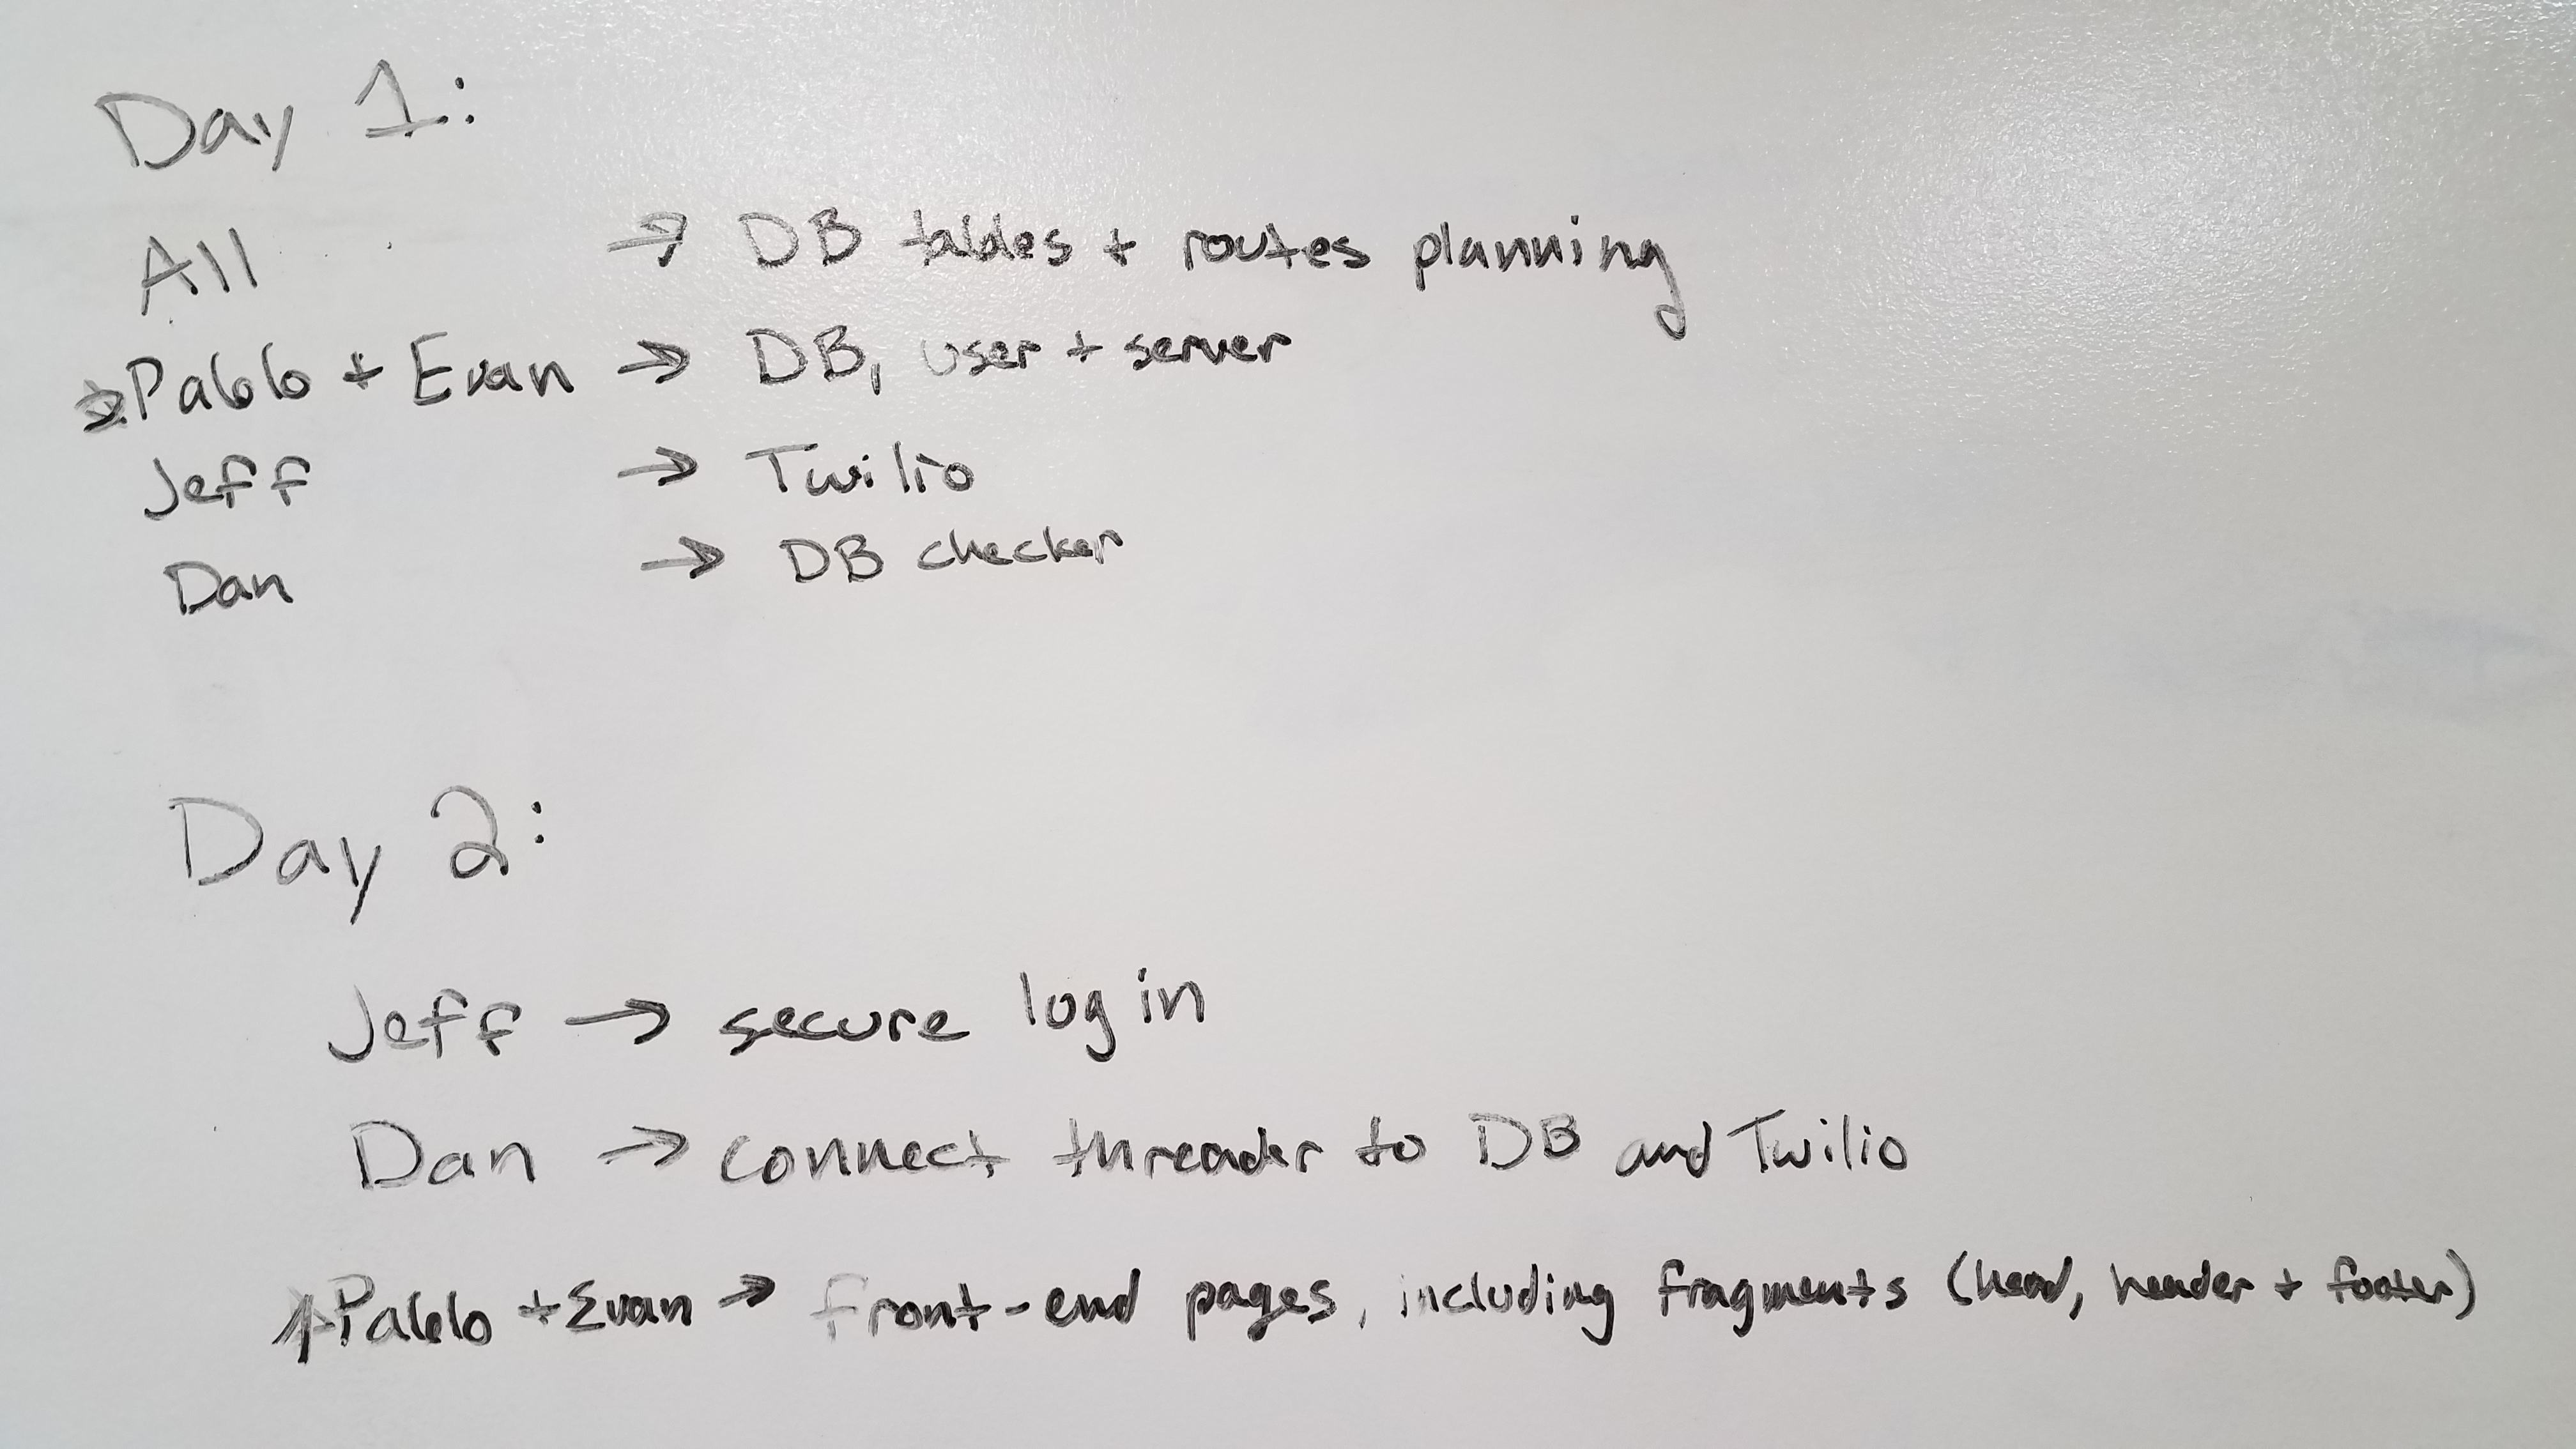 Day 1:
All → DB tables + routes planning
Pablo + Evan → DB, user + server
Jeff → Twilio
Dan → DB checker
Day 2:
Jeff → secure log in
Dan → connect threader to DB and Twilio
Pablo + Evan → front-end pages, including fragments (head, header + footer)